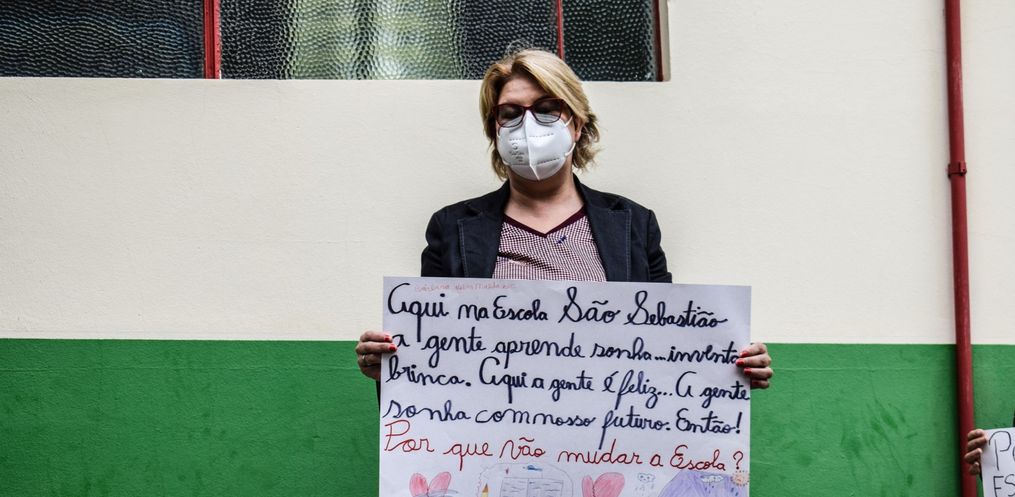 Aqui na Escola São Sebastião
a gente aprende sonha...inventa
brinca. Aqui a gente é feliz... A gente
sonha com nosso futuro. Então!
Por que não mudar a Escola?
ES